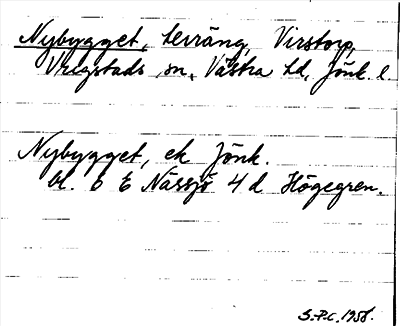 Nybygget, Levräng, Virstorp,
Vrigstads sn, Västra hd, Jönk. l.
Nybygget, ek Jönk.
bl. 6 E Nässjö 4 d Högegren.
S.P.C. 1958.